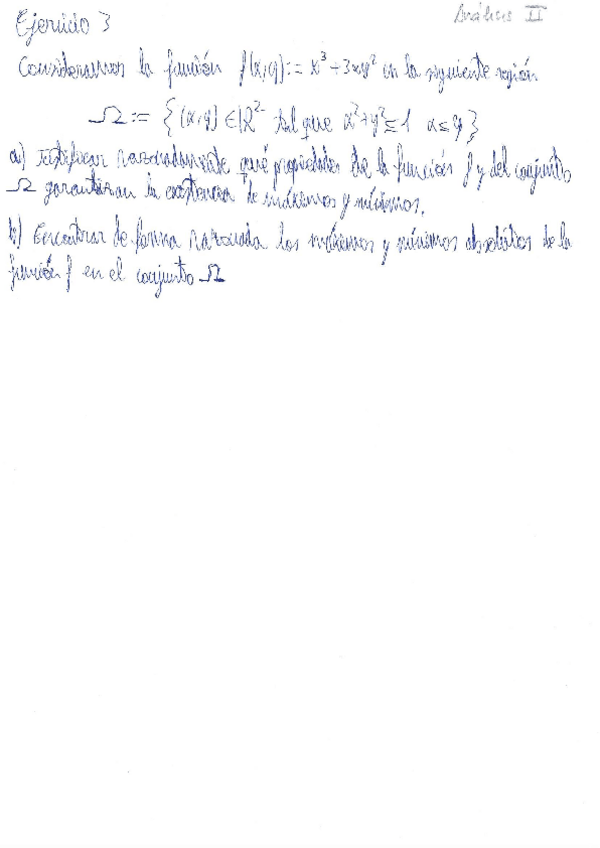 Análisis II
Ejercicio 3
Consideramos la función f(x,y):= x³+3xy² en la siguiente región
Ω := { (x,y) ∈ ℝ² tal que x²+y² ≤ 1 x ≤ y }
a) Justificar razonadamente qué propiedades de la función f y del conjunto
Ω garantizan la existencia de máximos y mínimos.
b) Encontrar de forma razonada los máximos y mínimos absolutos de la
función f en el conjunto Ω